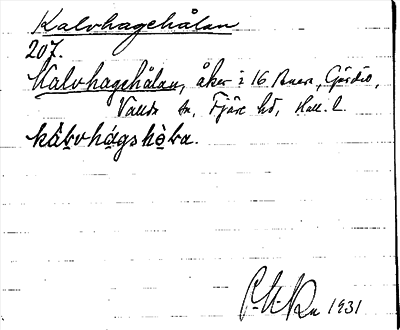 Kalvhagehålan
207.
Kalvhagehålan, åker i 16 Buera, Gårdio,
Vallda sn, Fjäre hd, Hall. l.
kàlvhágshòla.
1931